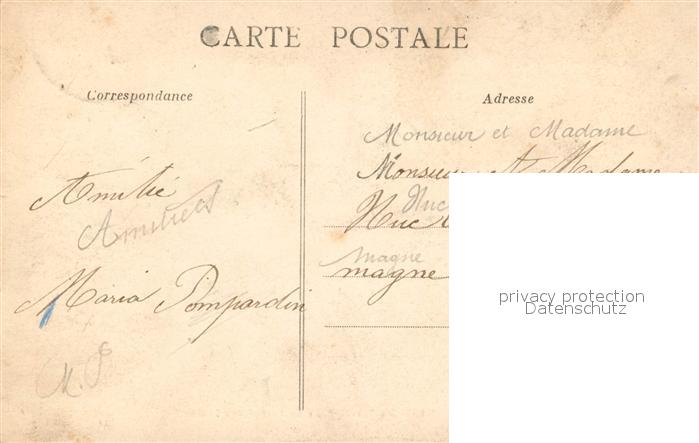 CARTE POSTALE
Correspondance
Adresse
Monsieur et Madame
Monsieur et Madame
Nuc
magne
magne
Amitié
Amitiés
Maria Pompardin
M. P
privacy protection
Datenschutz